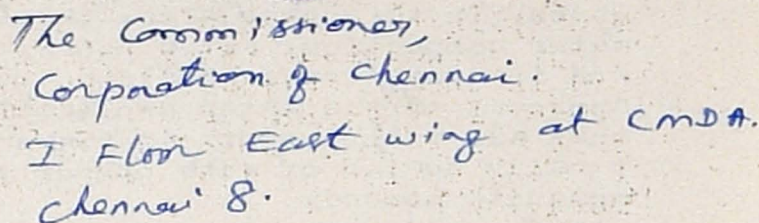 The Commissioner,
Corporation of Chennai.
I Floor East wing at CMDA.
Chennai 8.